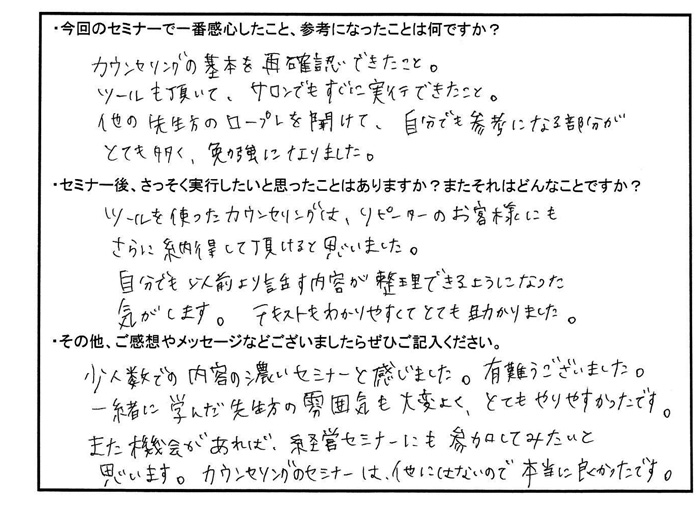 ・今回のセミナーで一番感心したこと、参考になったことは何ですか？
カウンセリングの基本を再確認できたこと。
ツールも頂いて、サロンでもすぐに実行できたこと。
他の先生方のロープレを聞けて、自分でも参考になる部分が
とても多く、勉強になりました。
・セミナー後、さっそく実行したいと思ったことはありますか？またそれはどんなことですか？
ツールを使ったカウンセリングは、リピーターのお客様にも
さらに納得して頂けると思いました。
自分でも以前より話す内容が整理できるようになった
気がします。 テキストもわかりやすくてとても助かりました。
・その他、ご感想やメッセージなどございましたらぜひご記入ください。
少人数での内容の濃いセミナーと感じました。有難うございました。
一緒に学んだ先生方の雰囲気も大変よく、とてもやりやすかったです。
また機会があれば、経営セミナーにも参加してみたいと
思います。カウンセリングのセミナーは、他にはないので本当に良かったです。